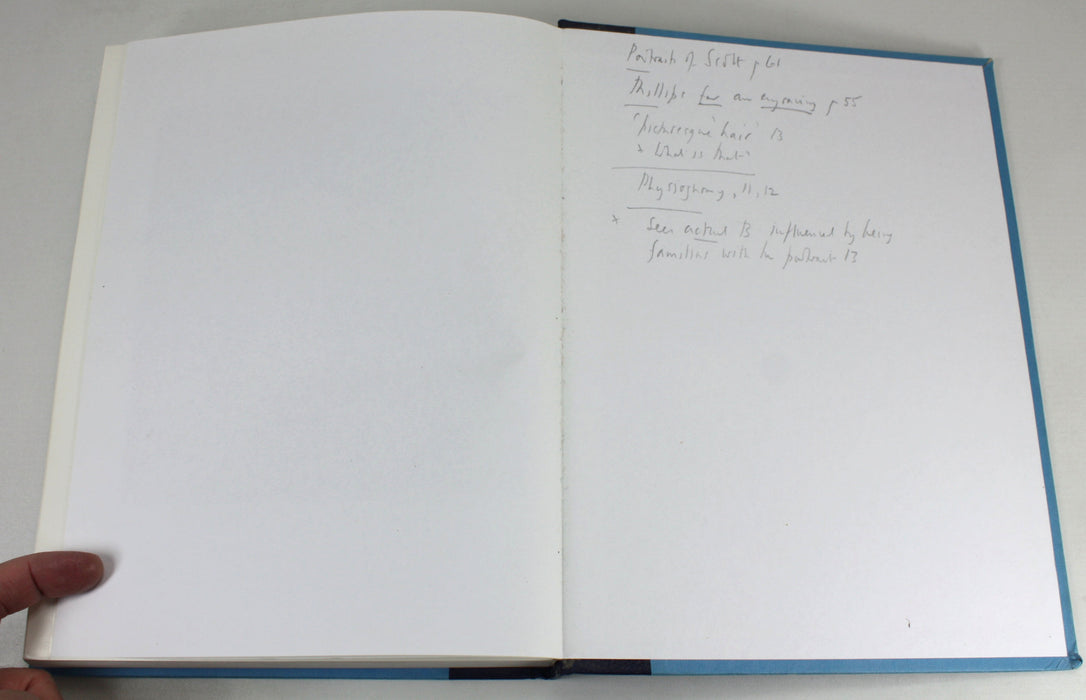 Portraits of Scott p 61
Phillips for an engraving p 55
'picturesque' hair 13
* What is that?
Physiognomy, 11, 12
* Seen actual B influenced by being
familiar with his portrait 13